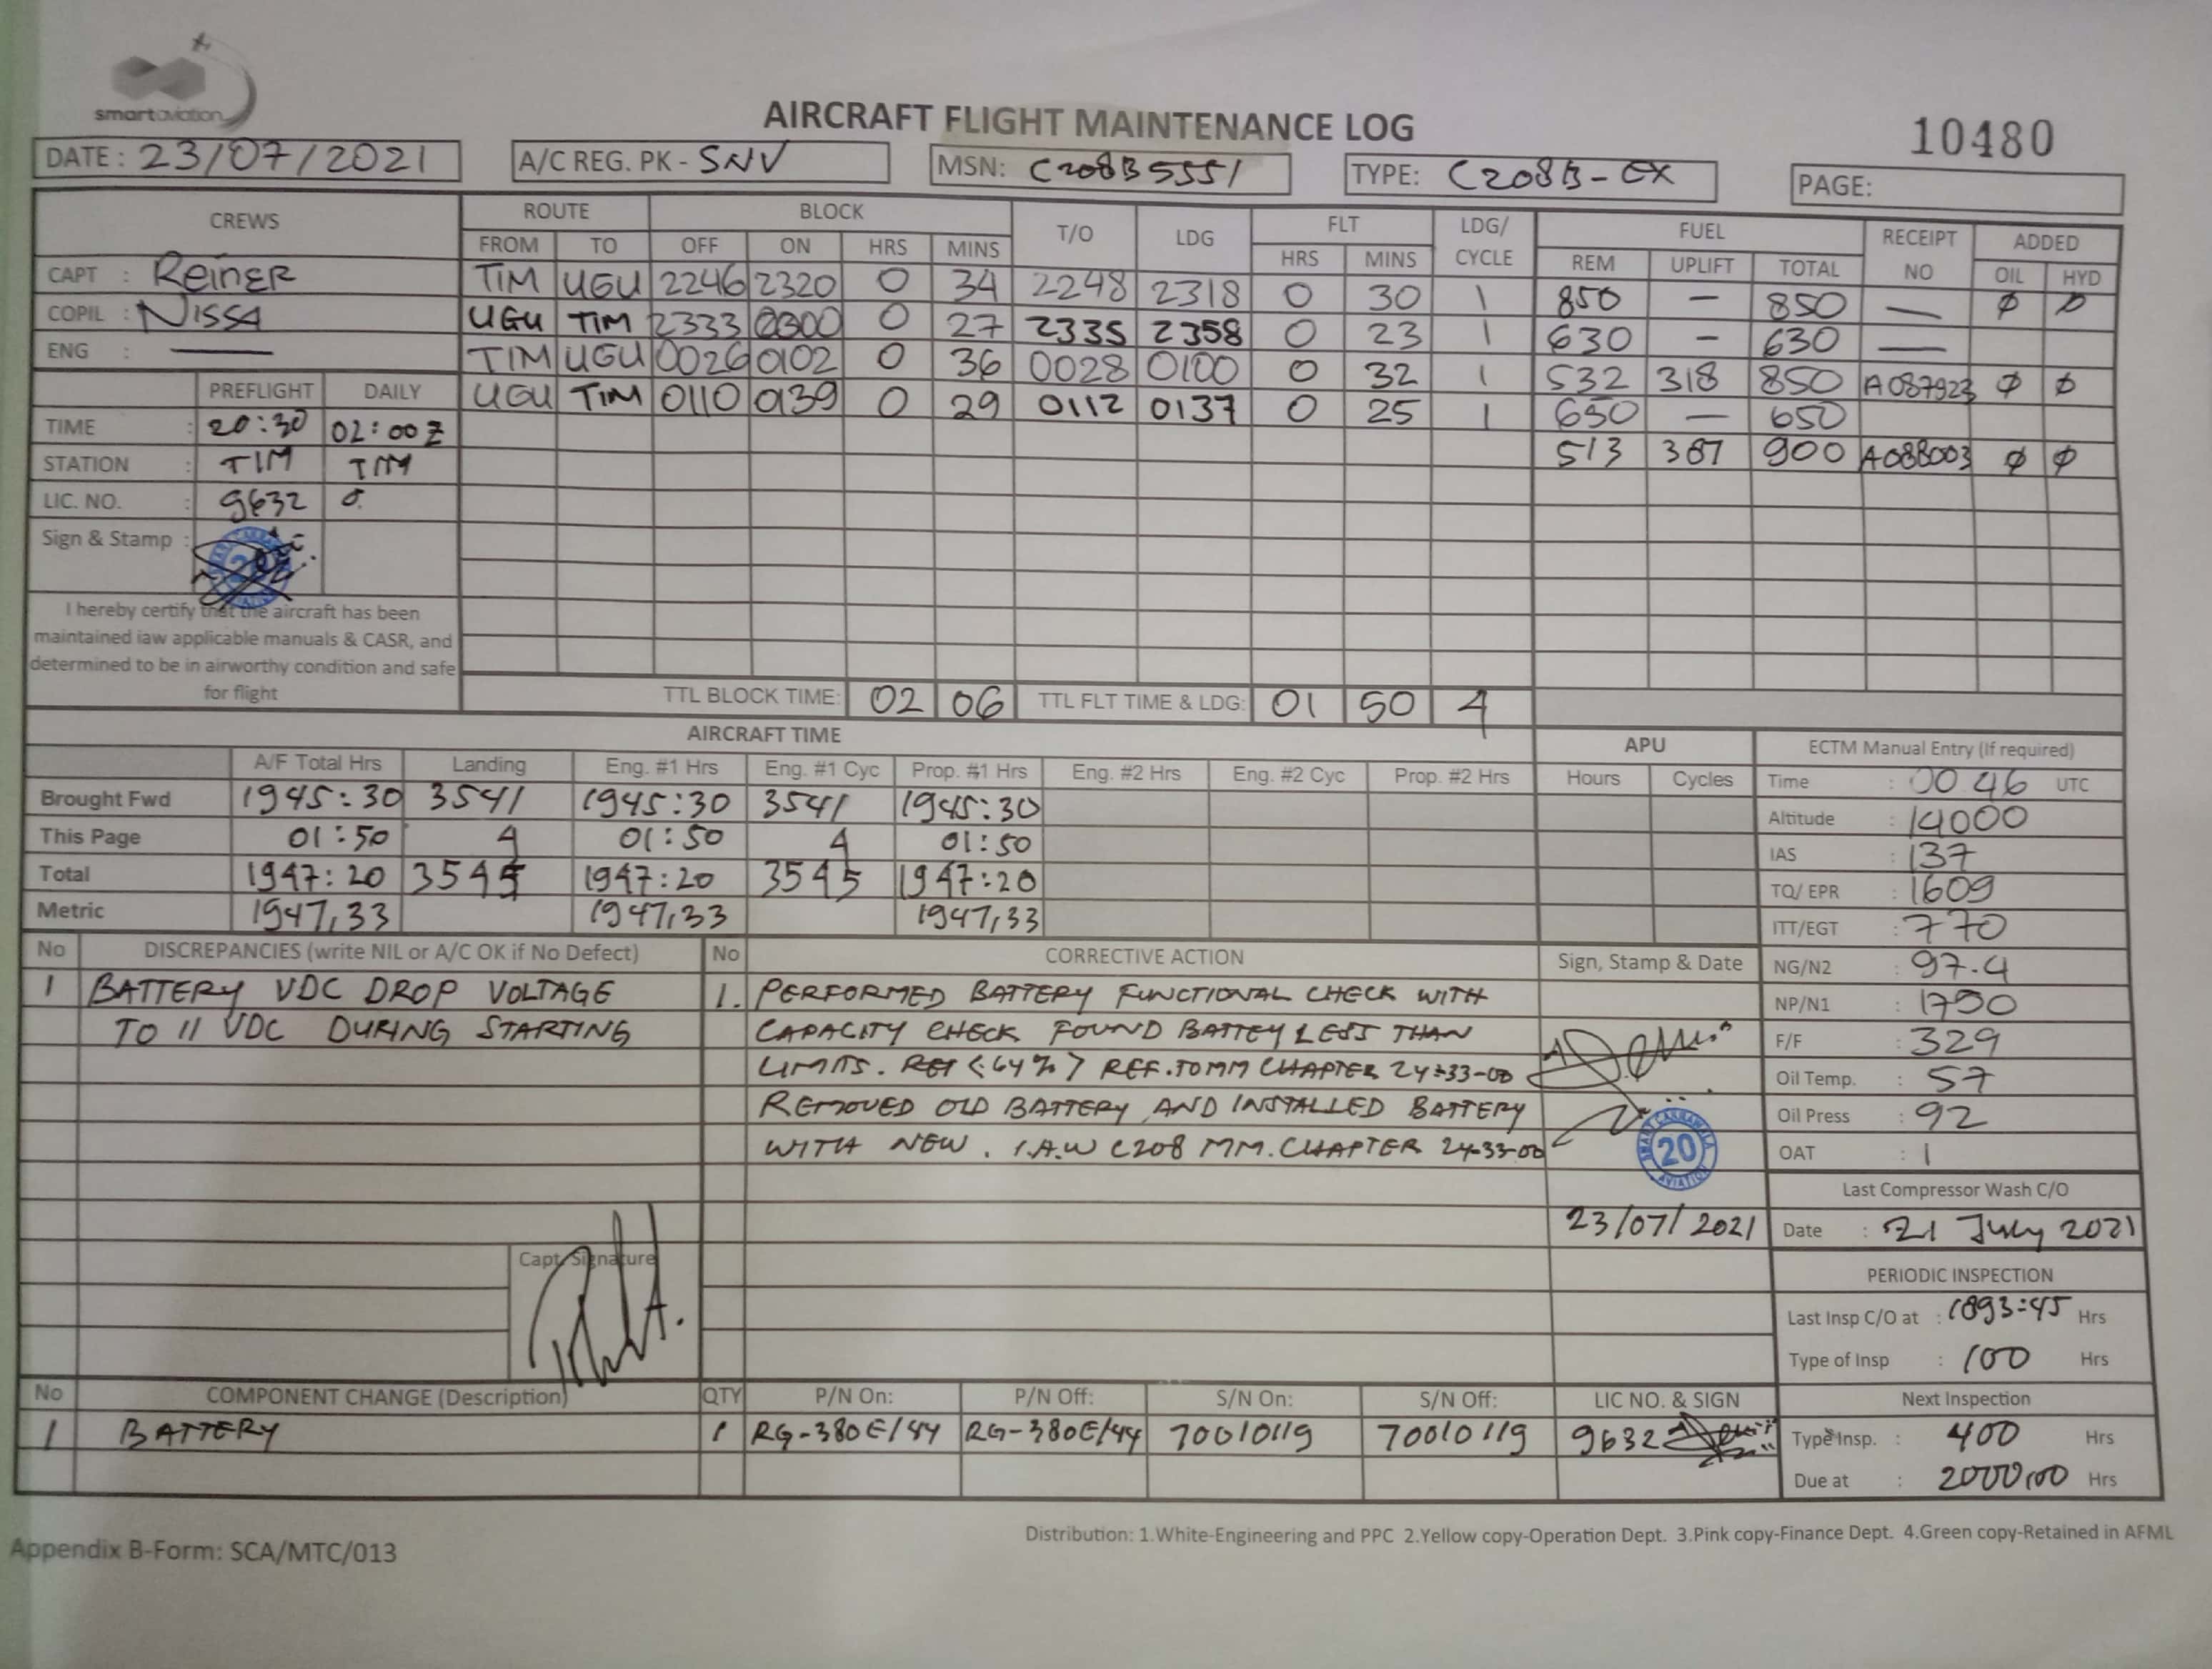 smartaviation
AIRCRAFT FLIGHT MAINTENANCE LOG
10480
DATE : 23/07/2021 A/C REG. PK - SNV MSN: C208B5551 TYPE: C208B-EX PAGE:
CREWS ROUTE BLOCK T/O LDG FLT LDG/ CYCLE FUEL RECEIPT NO ADDED
FROM TO OFF ON HRS MINS HRS MINS REM UPLIFT TOTAL OIL HYD
CAPT : REINER TIM UGU 2246 2320 0 34 2248 2318 0 30 1 850 — 850 — Ø Ø
COPIL : NISSA UGU TIM 2333 0000 0 27 2335 2358 0 23 1 630 — 630 —
ENG : — TIM UGU 0026 0102 0 36 0028 0100 0 32 1 532 318 850 A087923 Ø Ø
PREFLIGHT DAILY UGU TIM 0110 0139 0 29 0112 0137 0 25 1 650 — 650
TIME : 20:30 02:00Z 513 387 900 A088003 Ø Ø
STATION : TIM TIM
LIC. NO. : 9632
Sign & Stamp : 20
I hereby certify that the aircraft has been
maintained iaw applicable manuals & CASR, and
determined to be in airworthy condition and safe
for flight
TTL BLOCK TIME: 02 06 TTL FLT TIME & LDG: 01 50 4
AIRCRAFT TIME APU ECTM Manual Entry (If required)
A/F Total Hrs Landing Eng. #1 Hrs Eng. #1 Cyc Prop. #1 Hrs Eng. #2 Hrs Eng. #2 Cyc Prop. #2 Hrs Hours Cycles Time : 00 46 UTC
Brought Fwd 1945:30 3541 1945:30 3541 1945:30 Altitude : 14000
This Page 01:50 4 01:50 4 01:50 IAS : 137
Total 1947:20 3545 1947:20 3545 1947:20 TQ/ EPR : 1609
Metric 1947,33 1947,33 1947,33 ITT/EGT : 770
No DISCREPANCIES (write NIL or A/C OK if No Defect) No CORRECTIVE ACTION Sign, Stamp & Date NG/N2 : 97.4
1 BATTERY VDC DROP VOLTAGE 1. PERFORMED BATTERY FUNCTIONAL CHECK WITH NP/N1 : 1750
TO 11 VDC DURING STARTING CAPACITY CHECK FOUND BATTEY LESS THAN F/F : 329
LIMITS. <64%> REF.TO MM CHAPTER 24-33-00 Oil Temp. : 57
REMOVED OLD BATTERY AND INSTALLED BATTERY Oil Press : 92
WITH NEW. I.A.W C208 MM. CHAPTER 24-33-00 OAT : 1
SMART CAKRAWALA 20 AVIATION
Last Compressor Wash C/O
23/07/2021 Date : 21 July 2021
Capt. Signature
PERIODIC INSPECTION
Last Insp C/O at : 1893:45 Hrs
Type of Insp : 100 Hrs
No COMPONENT CHANGE (Description) QTY P/N On: P/N Off: S/N On: S/N Off: LIC NO. & SIGN Next Inspection
1 BATTERY 1 RG-380E/44 RG-380E/44 70010119 70010119 9632 Type Insp. : 400 Hrs
Due at : 2000,00 Hrs
Distribution: 1.White-Engineering and PPC 2.Yellow copy-Operation Dept. 3.Pink copy-Finance Dept. 4.Green copy-Retained in AFML
Appendix B-Form: SCA/MTC/013